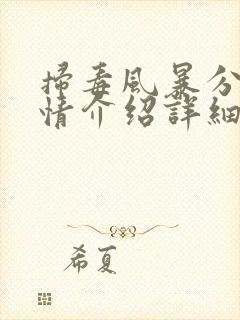 掃毒風暴分
情介紹詳細
希夏